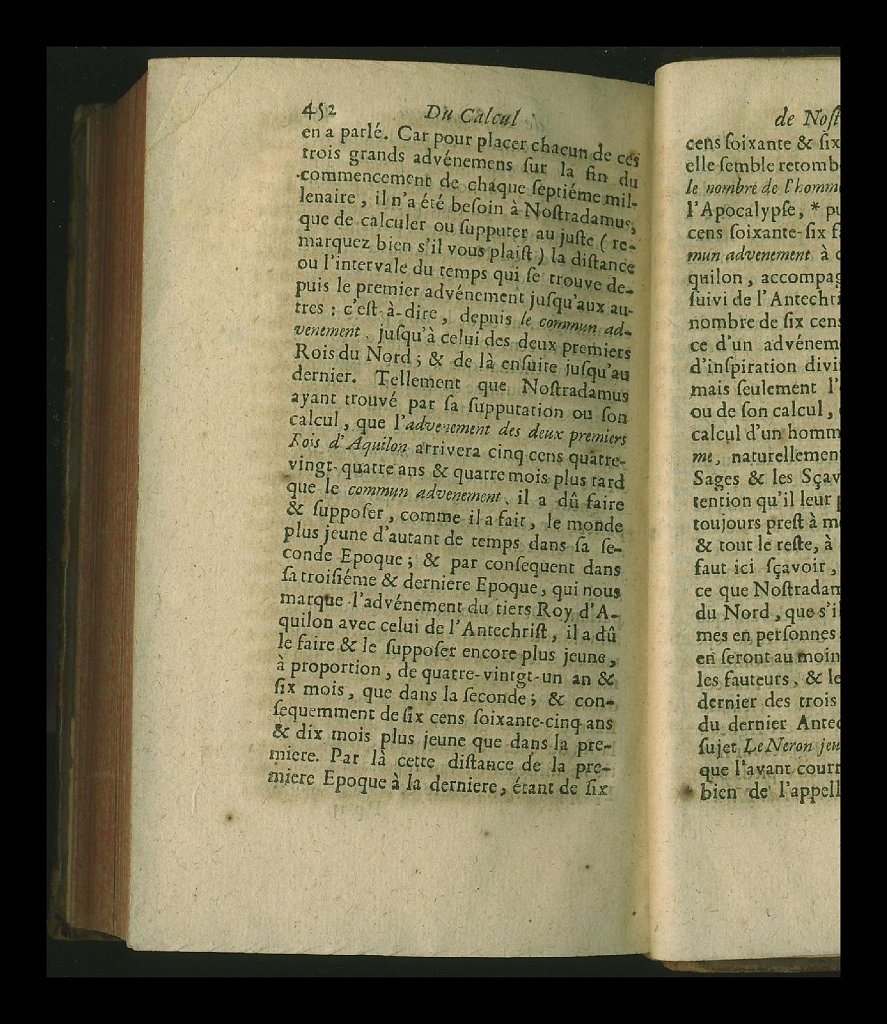 452 Du Calcul
en a parlé. Car pour placer chacun de ces
trois grands advénemens ſur la fin du
commencement de chaque ſeptiéme mil-
lenaire, il n'a été beſoin à Noſtradamus,
que de calculer ou ſupputer au juſte (re-
marquez bien s'il vous plaiſt) la diſtance
ou l'intervale du temps qui ſe trouve de-
puis le premier advénement juſqu'aux au-
tres : c'eſt-à-dire, depuis le commun ad-
venement, juſqu'à celui des deux premiers
Rois du Nord ; & de là enſuite juſqu'au
dernier. Tellement que Noſtradamus
ayant trouvé par ſa ſupputation ou ſon
calcul, que l'advenement des deux premiers
Rois d'Aquilon arrivera cinq cens quatre-
vingt-quatre ans & quatre mois plus tard
que le commun advenement, il a dû faire
& ſuppoſer, comme il a fait, le monde
plus jeune d'autant de temps dans ſa ſe-
conde Epoque ; & par conſequent dans
ſa troiſiéme & derniere Epoque, qui nous
marque l'advénement du tiers Roy d'A-
quilon avec celui de l'Antechriſt, il a dû
le faire & le ſuppoſer encore plus jeune,
à proportion, de quatre-vintgt-un an &
ſix mois, que dans la ſeconde ; & con-
ſequemment de ſix cens ſoixante-cinq ans
& dix mois plus jeune que dans la pre-
miere. Par là cette diſtance de la pre-
miere Epoque à la derniere, étant de ſix
de Noſt
cens ſoixante & ſix
elle ſemble retomb
le nombre de l'homme
l'Apocalypſe, * pu
cens ſoixante-ſix f
mun advenement à c
quilon, accompag
ſuivi de l'Antechri
nombre de ſix cens
ce d'un advénem
d'inſpiration divi
mais ſeulement l'
ou de ſon calcul,
calcul d'un homm
me, naturellemen
Sages & les Sçav
tention qu'il leur p
toujours preſt à m
& tout le reſte, à
faut ici ſçavoir,
ce que Noſtradam
du Nord, que s'i
mes en perſonnes
en ſeront au moin
les fauteurs, & le
dernier des trois
du dernier Antec
ſujet Le Neron jeu
que l'avant-courr
bien de l'appell